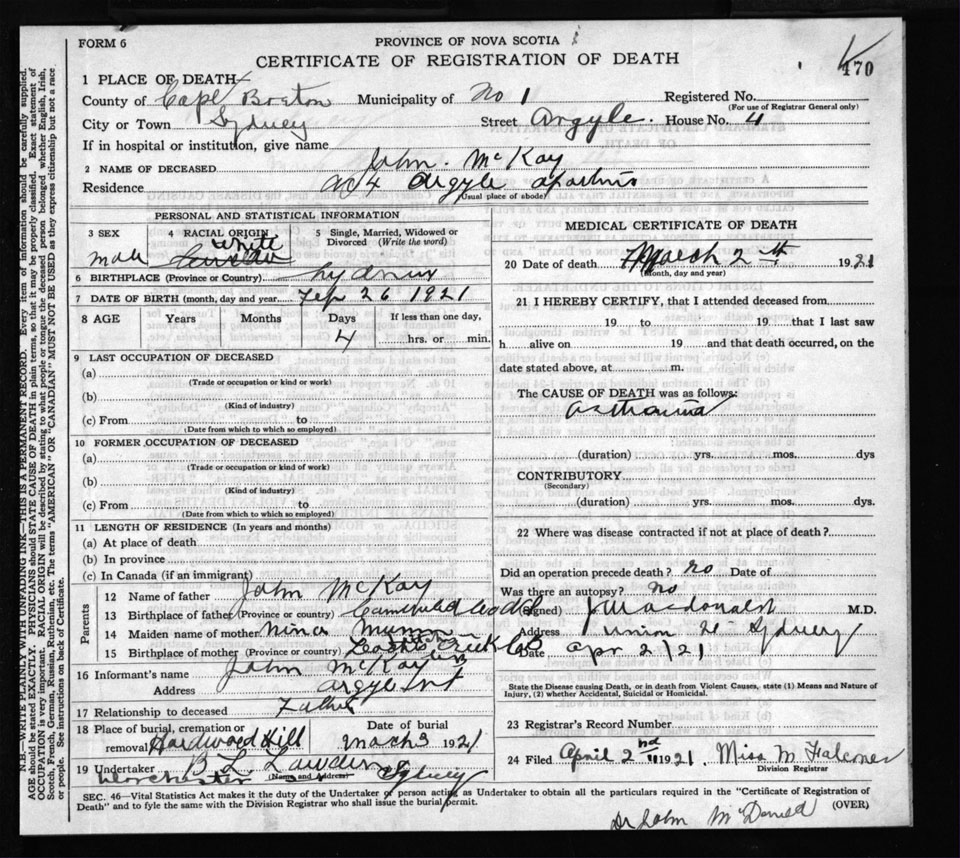 FORM 6
PROVINCE OF NOVA SCOTIA
CERTIFICATE OF REGISTRATION OF DEATH
470
1 PLACE OF DEATH
County of Cape Breton Municipality of No 1 Registered No.
(For use of Registrar General only)
City or Town Sydney Street Argyle. House No. 4
If in hospital or institution, give name
2 NAME OF DECEASED John. McKay
Residence No 4 Argyle
(Usual place of abode)
PERSONAL AND STATISTICAL INFORMATION
3 SEX 4 RACIAL ORIGIN 5 Single, Married, Widowed or Divorced (Write the word)
male white
6 BIRTHPLACE (Province or Country) Sydney
7 DATE OF BIRTH (month, day and year) Feb 26 1921
8 AGE Years Months Days If less than one day,
4 hrs. or min.
9 LAST OCCUPATION OF DECEASED
(a)
(Trade or occupation or kind or work)
(b)
(Kind of industry)
(c) From to
(Date from which to which so employed)
10 FORMER OCCUPATION OF DECEASED
(a)
(Trade or occupation or kind of work)
(b)
(Kind of industry)
(c) From to
(Date from which to which so employed)
11 LENGTH OF RESIDENCE (In years and months)
(a) At place of death
(b) In province
(c) In Canada (if an immigrant)
Parents
12 Name of father John McKay
13 Birthplace of father (Province or country)
14 Maiden name of mother Nina
15 Birthplace of mother (Province or country) Creek CB
16 Informant's name John McKay
Address Argyle
17 Relationship to deceased Father
18 Place of burial, cremation or removal Hardwood Hill Date of burial March 3 1921
19 Undertaker B L
(Name and Address) Sydney
MEDICAL CERTIFICATE OF DEATH
20 Date of death March 2 1921
(Month, day and year)
21 I HEREBY CERTIFY, that I attended deceased from
19 to 19 that I last saw
h alive on 19 and that death occurred, on the
date stated above, at m.
The CAUSE OF DEATH was as follows:
(duration) yrs. mos. dys
CONTRIBUTORY
(Secondary)
(duration) yrs. mos. dys.
22 Where was disease contracted if not at place of death?
Did an operation precede death? no Date of
Was there an autopsy? no
(Signed) J Macdonald M.D.
Address Union St Sydney
Date Apr 2/21
State the Disease causing Death, or in death from Violent Causes, state (1) Means and Nature of Injury, (2) whether Accidental, Suicidal or Homicidal.
23 Registrar's Record Number
24 Filed April 2nd 1921. Miss M Falconer
Division Registrar
SEC. 46—Vital Statistics Act makes it the duty of the Undertaker or person acting as Undertaker to obtain all the particulars required in the "Certificate of Registration of Death" and to fyle the same with the Division Registrar who shall issue the burial permit.
(OVER)
Dr John McDonald
N.B.—WRITE PLAINLY WITH UNFADING INK—THIS IS A PERMANENT RECORD. Every item of information should be carefully supplied.
AGE should be stated EXACTLY. PHYSICIANS should STATE CAUSE OF DEATH in plain terms, so that it may be properly classified. Exact statement of
OCCUPATION is very important. RACIAL ORIGIN will be described by stating to what people or tongue the deceased person belonged whether English, Irish,
Scotch, French, German, Russian, Ruthenian, etc. The terms "AMERICAN" OR "CANADIAN" MUST NOT BE USED as they express citizenship but not a race
or people. See instructions on back of Certificate.